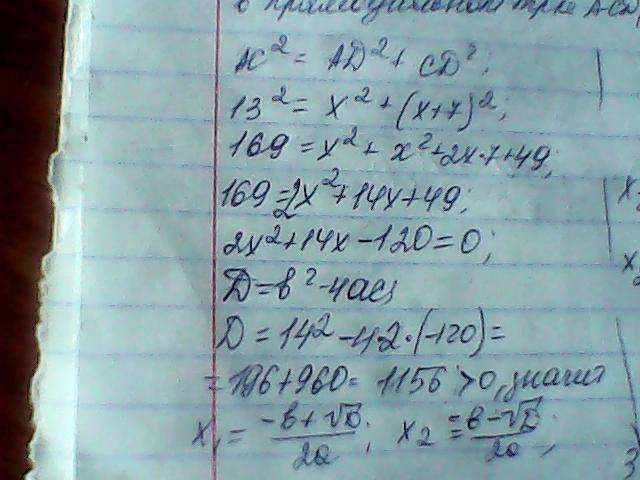 в прямоугольном тр-ке ACD
AC² = AD² + CD²;
13² = x² + (x+7)²;
169 = x² + x² + 2x·7+49;
169 = 2x²+14x+49;
2x²+14x-120=0;
D=b²-4ac;
D = 14² -4·2·(-120)=
=196+960= 1156 >0, значит
x₁ = (-b+√D)/2a; x₂ = (-b-√D)/2a;